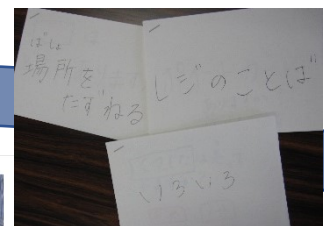 ばしょ
場所を
たずねる
レジのことば
いろいろ